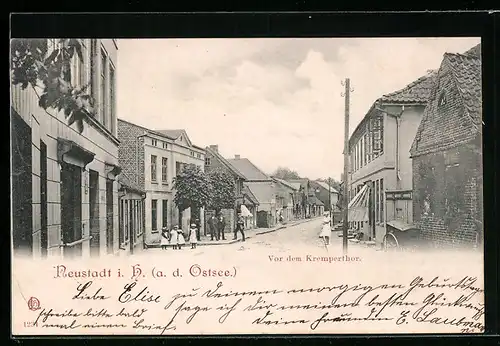 Vor dem Kremperthor.
Neustadt i. H. (a. d. Ostsee.)
Liebe Elise zu Deinem morgigen Geburtstag
schreibe bitte bald sage ich dir meine besten Glückwünsche
mal einen Brief. deine